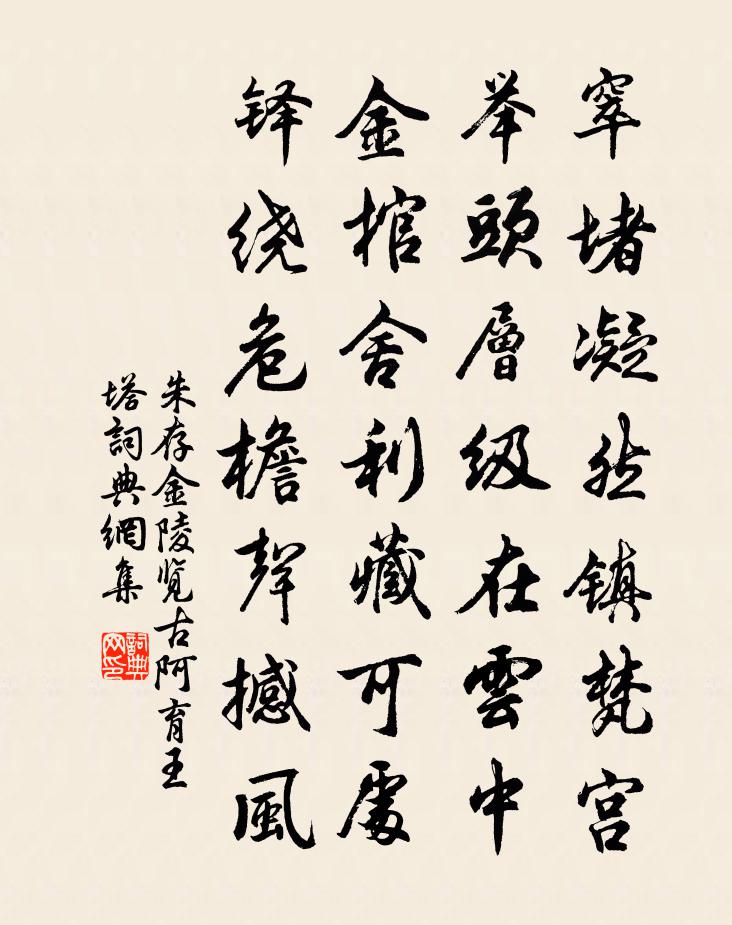 窣堵凝然镇梵宫
举頭層级在雲中
金棺舍利藏可處
铎绕危檐聲撼風
朱存金陵览古阿育王
塔詞典網集
詞典网印